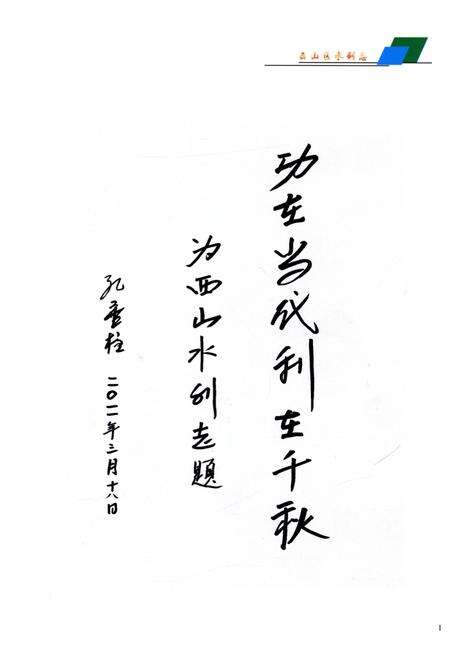 西山区水利志
功在当代利在千秋
为西山水利志题
孔垂柱 二〇一一年三月十八日
1